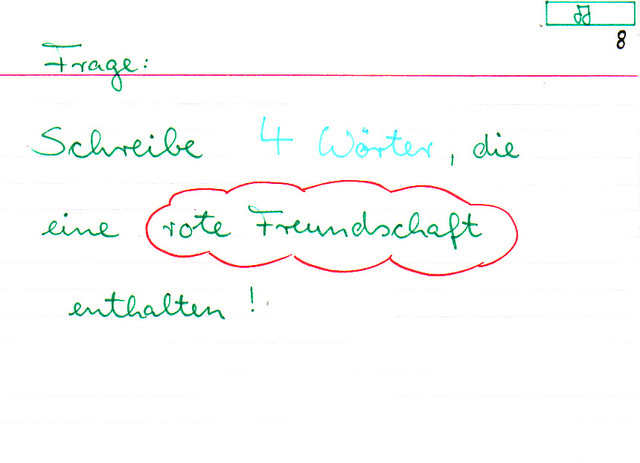 8
Frage:
Schreibe 4 Wörter, die
eine rote Freundschaft
enthalten !